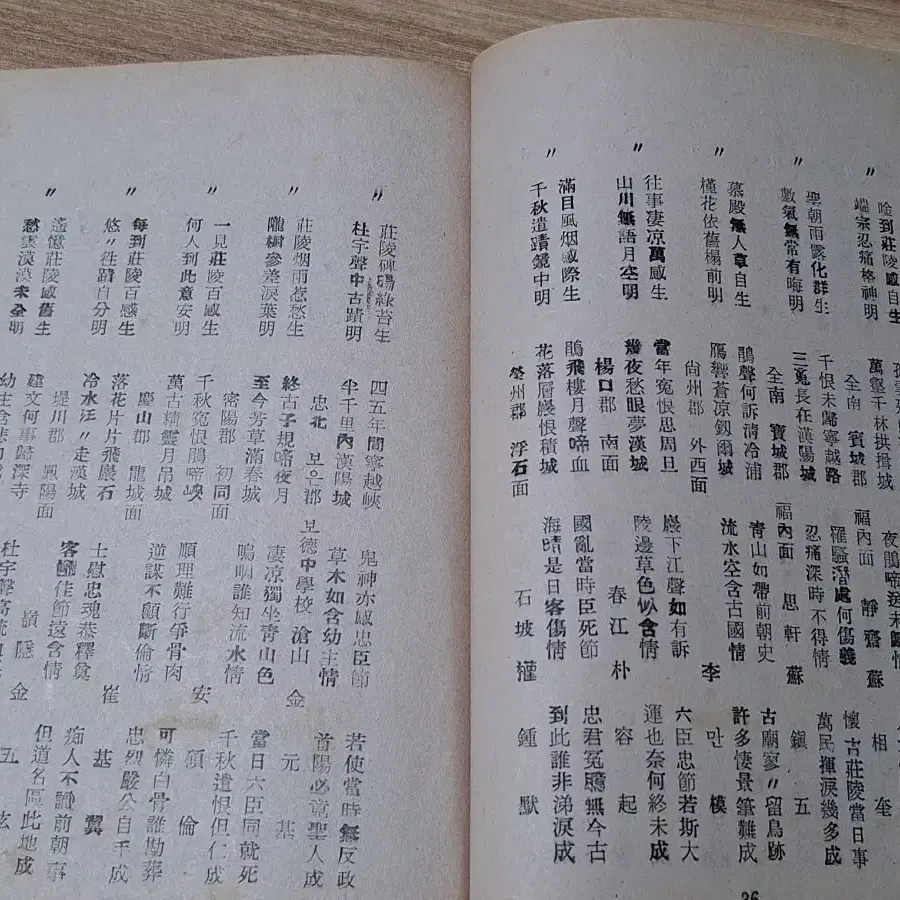 唫到莊陵感自生
端宗忍痛格神明
萬壑千林拱揖城
夜鵑啼送未歸
〃 全南 賓城郡 福內面 靜齋 蘇 相奎
聖朝雨露化群生
數氣無常有晦明
千恨未歸寧越路
三冤長在漢陽城
羅騷潛處何傷義
忍痛深時不得情
懷古莊陵當日事
萬民揮淚幾多成
〃 全南 寶城郡 福內面 思軒 蘇 鎭五
慕殿無人草自生
槿花依舊榻前明
鵑聲何訴清冷浦
鴈響蒼凉釼爾城
青山如帶前朝史
流水空含古國情
古廟寥〃留鳥跡
許多悽景筆難成
〃 尙州郡 外西面 李 만模
往事凄凉萬感生
山川無語月空明
當年冤恨思周旦
幾夜愁眼夢漢城
巖下江聲如有訴
陵邊草色似含情
六臣忠節若斯大
運也奈何終未成
〃 楊口郡 南面 春江 朴 容起
滿目風烟感際生
千秋遺蹟鏡中明
鵑飛樓月聲啼血
花落層巖恨積城
國亂當時臣死節
海晴是日客傷情
忠君冤 無今古
到此誰非涕淚成
〃 榮州郡 浮石面 石坡 權 鍾默
36
莊陵碑 綠苔生
杜宇聲中古蹟明
四五年間寧越峽
半千里內漢陽城
鬼神亦感忠臣節
草木如含幼主情
若使當時無反政
首陽必竟聖人成
〃 忠北 보은郡 보德中學校 滄山 金 元基
莊陵烟雨惹愁生
隴樹參差淚葉明
終古子規啼夜月
至今芳草滿春城
凄凉獨坐靑山色
嗚咽誰知流水情
當日六臣同就死
千秋遺恨但仁成
〃 密陽郡 初同面 安 碩倫
一見莊陵百感生
何人到此意安明
千秋冤恨鵑啼峽
萬古精靈月吊城
順理難行爭骨肉
逆謀不顧斷倫情
可憐白骨誰勘葬
忠烈嚴公自手成
〃 慶山郡 龍城面 崔 基翼
每到莊陵百感生
悠〃徃蹟自分明
落花片片飛巖石
冷水汪〃走漢城
士慰忠魂恭釋奠
客歸作節遠含情
痴人不識前朝事
但道名區此地成
〃 堤川郡 鳳陽面 嶺隱 金 五
遙憶莊陵感舊生
愁雲漠漠未全明
建文何事歸深寺
幼主含悲
杜宇聲高流
〃